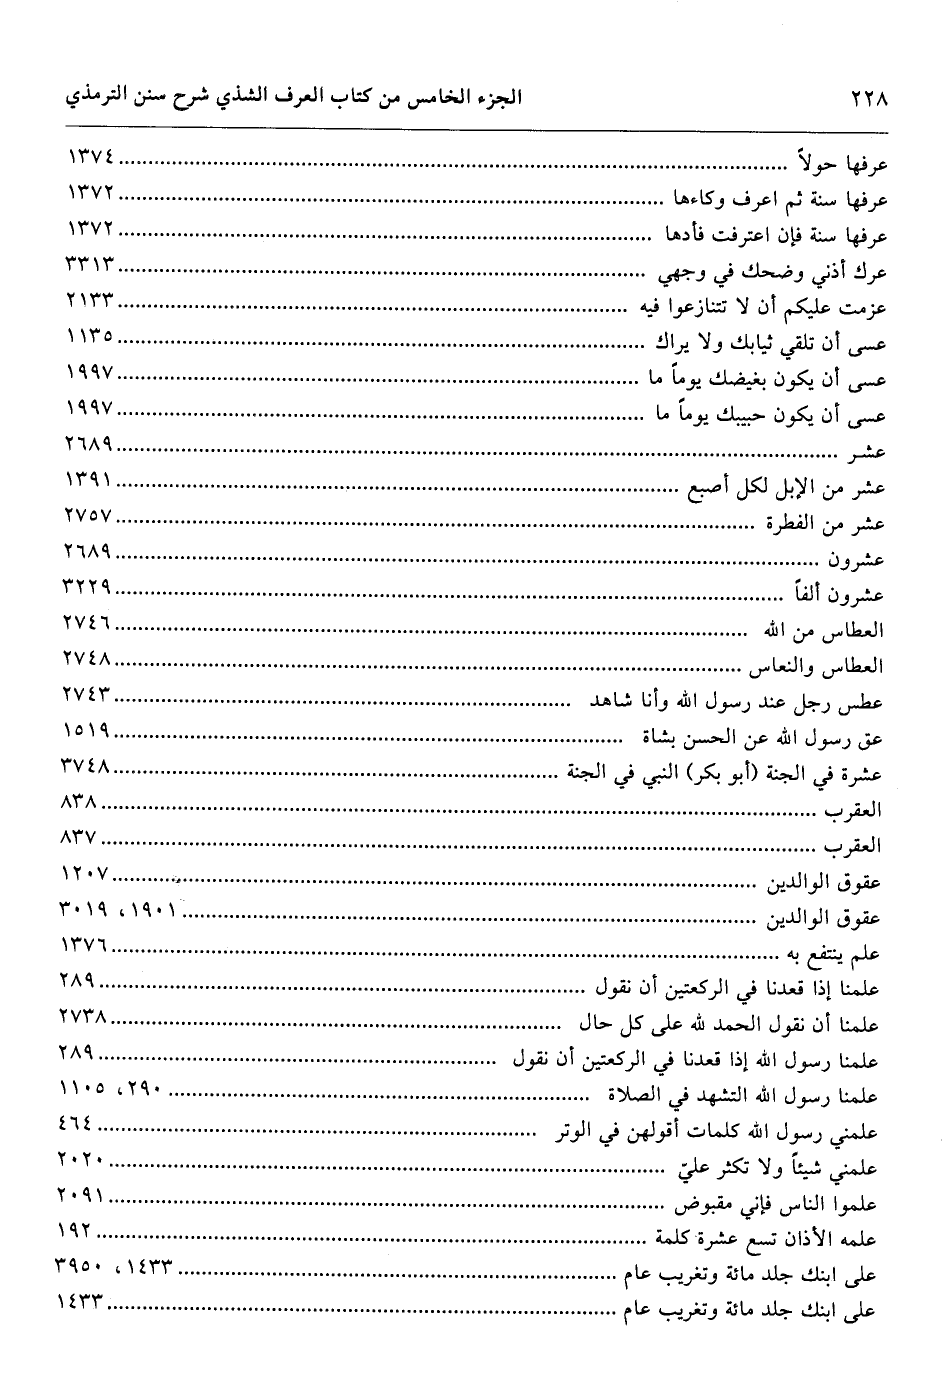 ٢٢٨ الجزء الخامس من كتاب العرف الشذي شرح سنن الترمذي
عرفها حولاً ........ ١٣٧٤
عرفها سنة ثم اعرف وكاءها ........ ١٣٧٢
عرفها سنة فإن اعترفت فأدها ........ ١٣٧٢
عرك أذني وضحك في وجهي ........ ٣٣١٣
عزمت عليكم أن لا تتنازعوا فيه ........ ٢١٣٣
عسى أن تلقي ثيابك ولا يراك ........ ١١٣٥
عسى أن يكون بغيضك يوماً ما ........ ١٩٩٧
عسى أن يكون حبيبك يوماً ما ........ ١٩٩٧
عشر ........ ٢٦٨٩
عشر من الإبل لكل أصبع ........ ١٣٩١
عشر من الفطرة ........ ٢٧٥٧
عشرون ........ ٢٦٨٩
عشرون ألفاً ........ ٣٢٢٩
العطاس من الله ........ ٢٧٤٦
العطاس والنعاس ........ ٢٧٤٨
عطس رجل عند رسول الله وأنا شاهد ........ ٢٧٤٣
عق رسول الله عن الحسن بشاة ........ ١٥١٩
عشرة في الجنة (أبو بكر) النبي في الجنة ........ ٣٧٤٨
العقرب ........ ٨٣٨
العقرب ........ ٨٣٧
عقوق الوالدين ........ ١٢٠٧
عقوق الوالدين ........ ١٩٠١، ٣٠١٩
علم ينتفع به ........ ١٣٧٦
علمنا إذا قعدنا في الركعتين أن نقول ........ ٢٨٩
علمنا أن نقول الحمد لله على كل حال ........ ٢٧٣٨
علمنا رسول الله إذا قعدنا في الركعتين أن نقول ........ ٢٨٩
علمنا رسول الله التشهد في الصلاة ........ ٢٩٠، ١١٠٥
علمني رسول الله كلمات أقولهن في الوتر ........ ٤٦٤
علمني شيئاً ولا تكثر عليّ ........ ٢٠٢٠
علموا الناس فإني مقبوض ........ ٢٠٩١
علمه الأذان تسع عشرة كلمة ........ ١٩٢
على ابنك جلد مائة وتغريب عام ........ ١٤٣٣، ٣٩٥٠
على ابنك جلد مائة وتغريب عام ........ ١٤٣٣